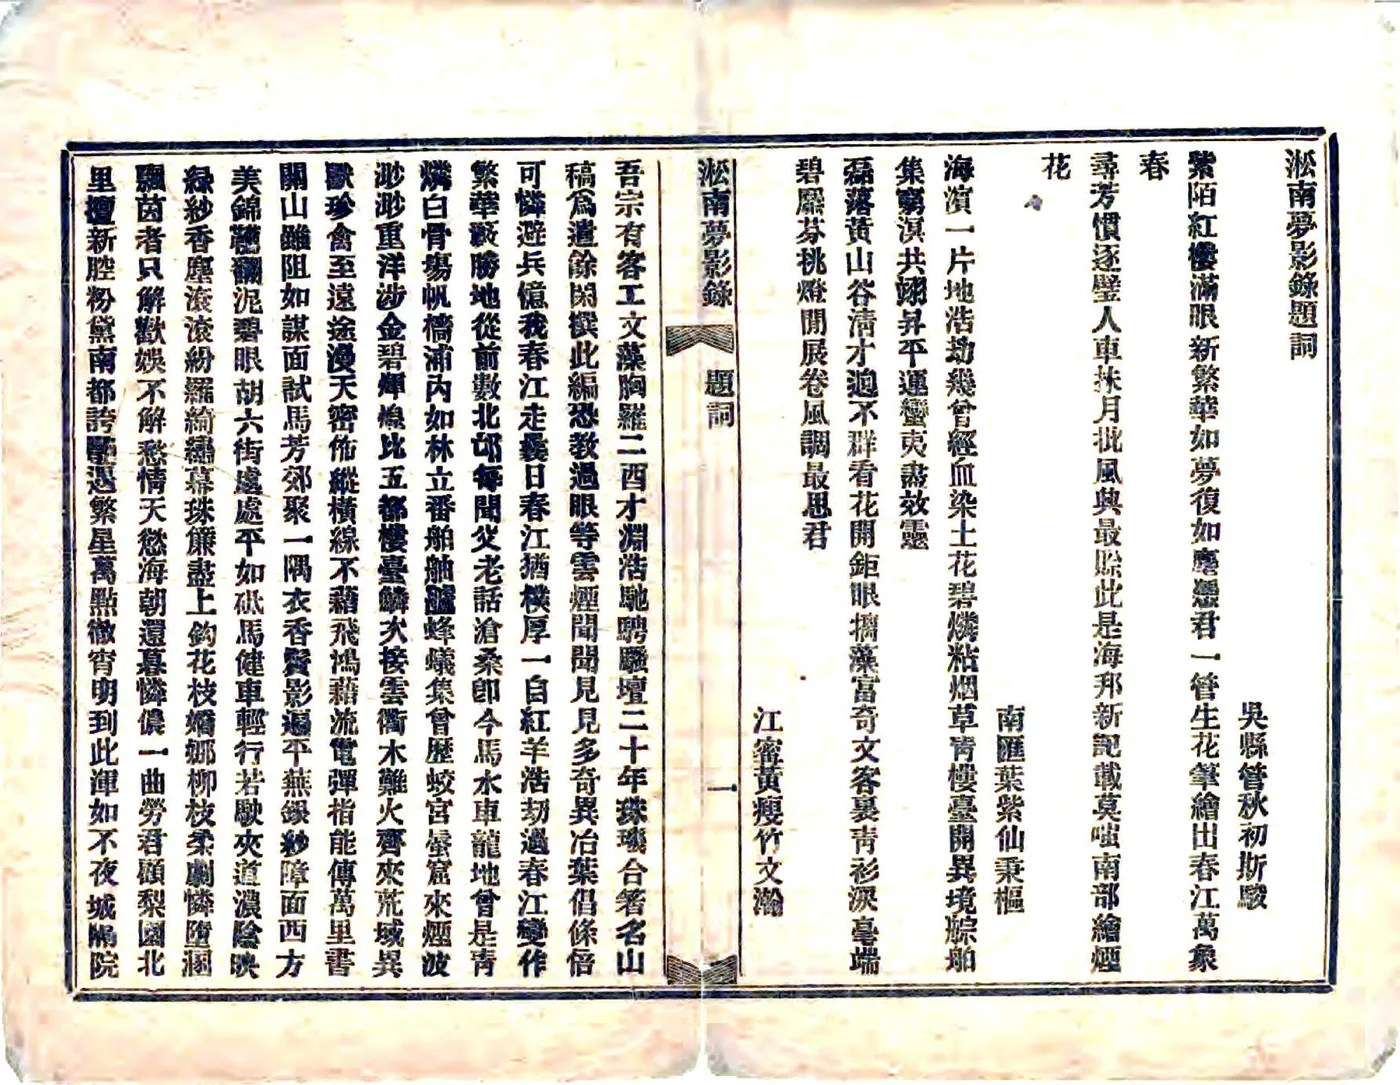 淞南夢影錄題詞
吳縣管秋初斯駿
紫陌紅樓滿眼新繁華如夢復如塵憑君一管生花筆繪出春江萬象
春
尋芳慣逐璧人車抹月批風興最賒此是海邦新記載莫嗤南部繪煙
花
南匯葉紫仙秉樞
海濱一片地浩劫幾曾經血染土花碧燐粘烟草青樓臺開異境賝舶
集窮溟共翊昇平運蠻夷盡效靈
磊落黃山谷清才逈不群看花開鉅眼摛藻富奇文客裏靑衫淚毫端
碧靡芬挑燈閒展卷風調最思君
江甯黃瘦竹文瀚
淞南夢影錄
題詞
一
吾宗有客工文藻胸羅二酉才淵浩馳騁騷壇二十年珠璣合箸名山
稿爲遣餘閑撰此編恐敎過眼等雲煙聞聞見見多奇異冶葉倡條倍
可憐避兵憶我春江走曩日春江猶樸厚一自紅羊浩刧過春江變作
繁華藪勝地從前數北邙每聞父老話滄桑卽今馬水車龍地曾是靑
燐白骨場帆檣浦內如林立番舶舳艫蜂蟻集曾歷蛟宮蜃窟來煙波
渺渺重洋涉金碧輝煌比五都樓臺鱗次接雲衢木難火齊來荒域異
獸珍禽至遠途漫天密佈縱橫線不藉飛鴻藉流電彈指能傳萬里書
關山雖阻如謀面試馬芳郊聚一隅衣香鬢影遍平蕪銀紗障面西方
美錦韉翻泥碧眼胡六街處處平如砥馬健車輕行若駛夾道濃陰映
綠紗香塵滾滾紛羅綺繡幕珠簾盡上鈎花枝嬝娜柳枝柔劇憐墮溷
飄茵者只解歡娛不解愁情天慾海朝還暮憐儂一曲勞君顧梨園北
里擅新腔粉黛南都誇豔遇繁星萬點徹宵明到此渾如不夜城隔院